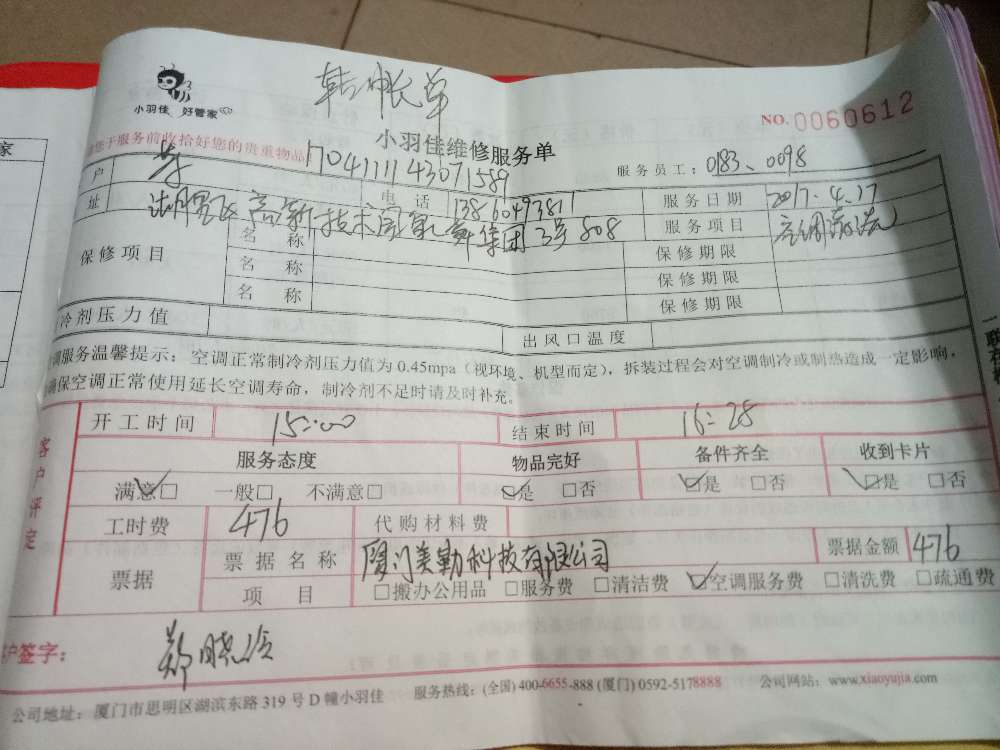 小羽佳 好管家
转帐单
NO. 0060612
小羽佳维修服务单
您于服务前收拾好您的贵重物品
1704111143071589
服务员工：0183、0098
户 李 电话 13860493811 服务日期 2017.4.17
址 高新技术园 集团3号808 服务项目 空调清洗
保修项目 名称 保修期限
名称 保修期限
名称 保修期限
冷剂压力值 出风口温度
调服务温馨提示：空调正常制冷剂压力值为 0.45mpa（视环境、机型而定），拆装过程会对空调制冷或制热造成一定影响，
确保空调正常使用延长空调寿命，制冷剂不足时请及时补充。
客户评定
开工时间 15:00 结束时间 16:28
服务态度 物品完好 备件齐全 收到卡片
满意☑ 一般□ 不满意□ ☑是 □否 ☑是 □否 ☑是 □否
工时费 476 代购材料费
票据 票据名称 厦门美勤科技有限公司 票据金额 476
项目 □搬办公用品 □服务费 □清洁费 ☑空调服务费 □清洗费 □疏通费
户签字：
公司地址：厦门市思明区湖滨东路 319 号 D 幢小羽佳 服务热线：(全国) 400-6655-888 (厦门) 0592-5178888 公司网站：www.xiaoyujia.com